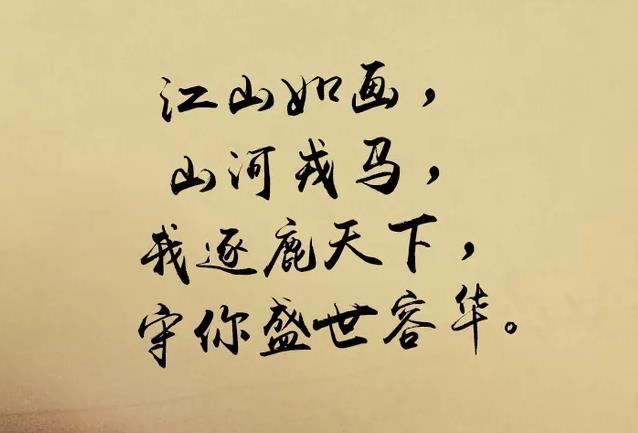 江山如画，
山河戎马，
我逐鹿天下，
守你盛世容华。